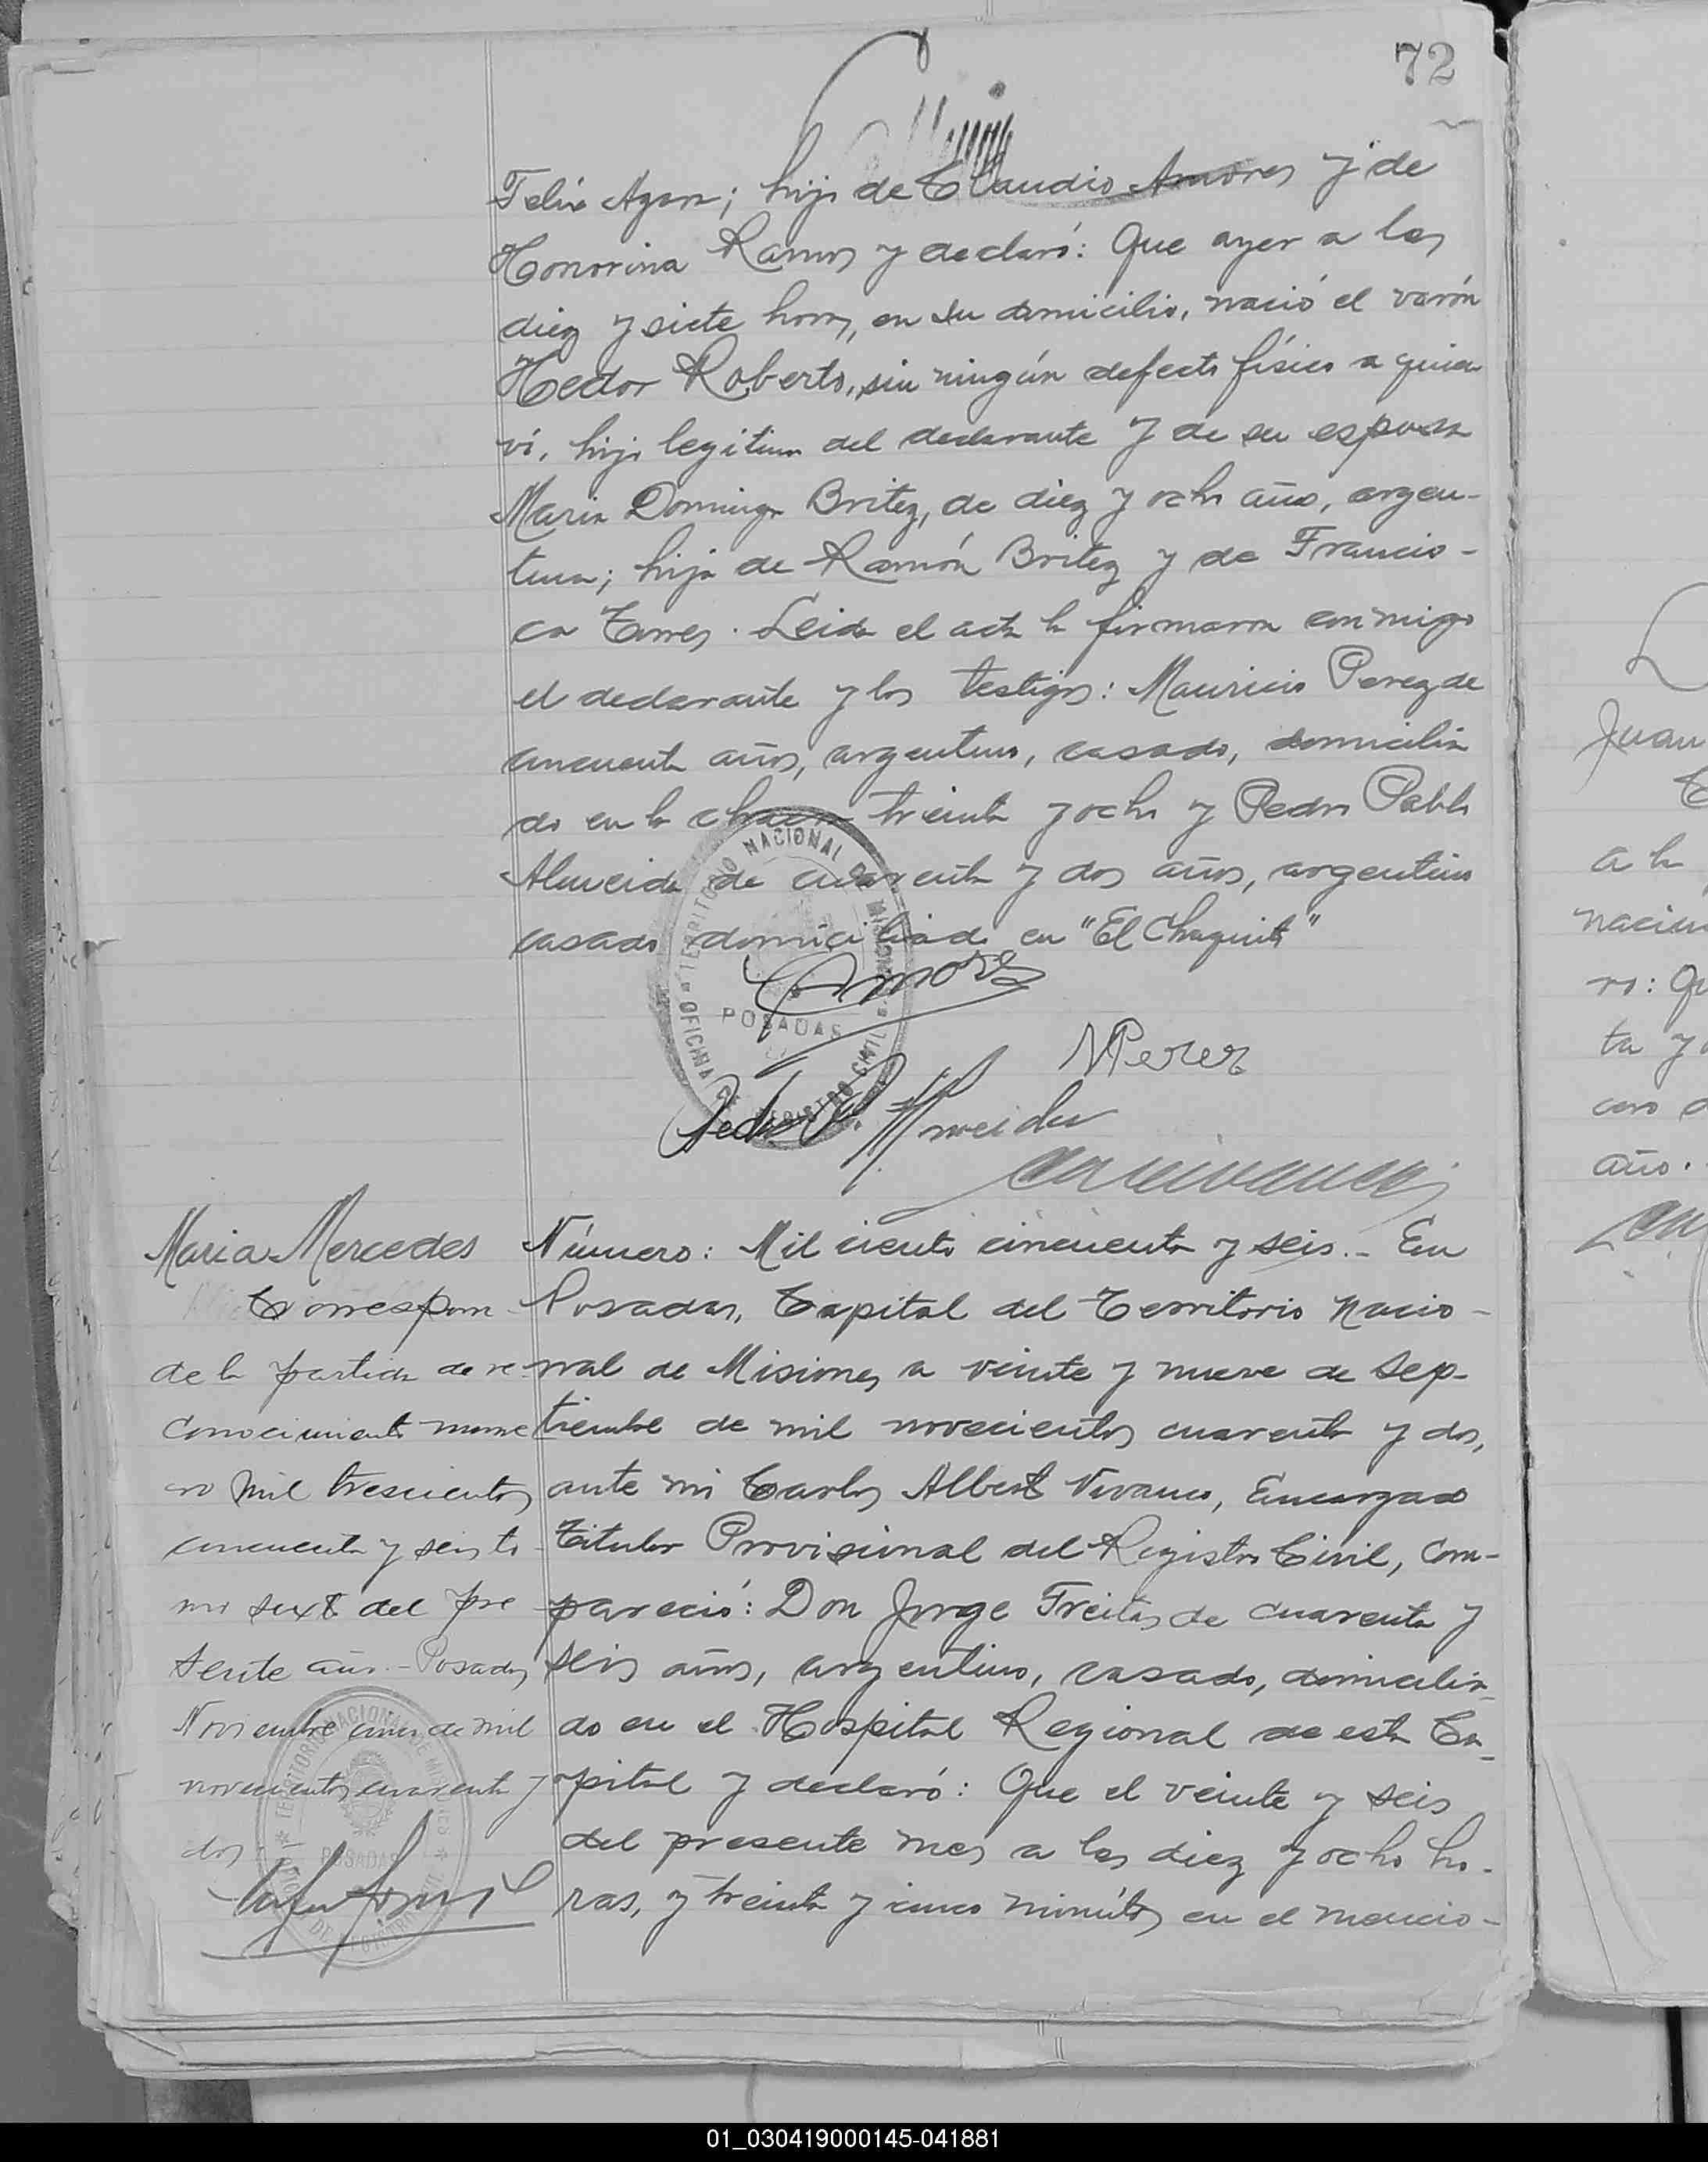 72
Felix Azara; hijo de Claudio Amores y de
Honorina Ramos y declaró: Que ayer a las
diez y siete horas, en su domicilio, nació el varón
Hector Roberto, sin ningún defecto físico a quien
ví, hijo legitimo del declarante y de su esposa
Maria Dominga Britez, de diez y ocho años, argen-
tina; hija de Ramón Britez y de Francis-
ca Torres. Leida el acta la firmaron conmigo
el declarante y los testigos: Mauricio Perez de
cincuenta años, argentino, casado, domicilia
do en la chacra treinta y ocho y Pedro Pablo
Almeida de cuarenta y dos años, argentino
casado domiciliado en "El Chaquito"
TERRITORIO NACIONAL DE MISIONES
OFICINA DE REGISTRO CIVIL
POSADAS
Amores
MPerez
Pedro P. Almeida
Maria Mercedes
Correspon
de la partida de re-
conocimiento nume
ro mil trescientos
cincuenta y seis to-
mo sexto del pre
sente año.- Posadas
Noviembre cinco de mil
novecientos cuarenta y
dos
TERRITORIO NACIONAL DE MISIONES
POSADAS
Número: Mil ciento cincuenta y seis.- En
Posadas, Capital del Territorio Nacio-
nal de Misiones a veinte y nueve de Sep-
tiembre de mil novecientos cuarenta y dos,
ante mi Carlos Alberto Vivanco, Encargado
Titular Provisional del Registro Civil, com-
pareció: Don Jorge Freitas de cuarenta y
seis años, argentino, casado, domicilia-
do en el Hospital Regional de esta Ca-
pital y declaró: Que el veinte y seis
del presente mes a las diez y ocho ho-
ras, y treinta y cinco minútos en el mencio-
Juan
a la
nacim
ro: Qu
ta y
año.
01_030419000145-041881